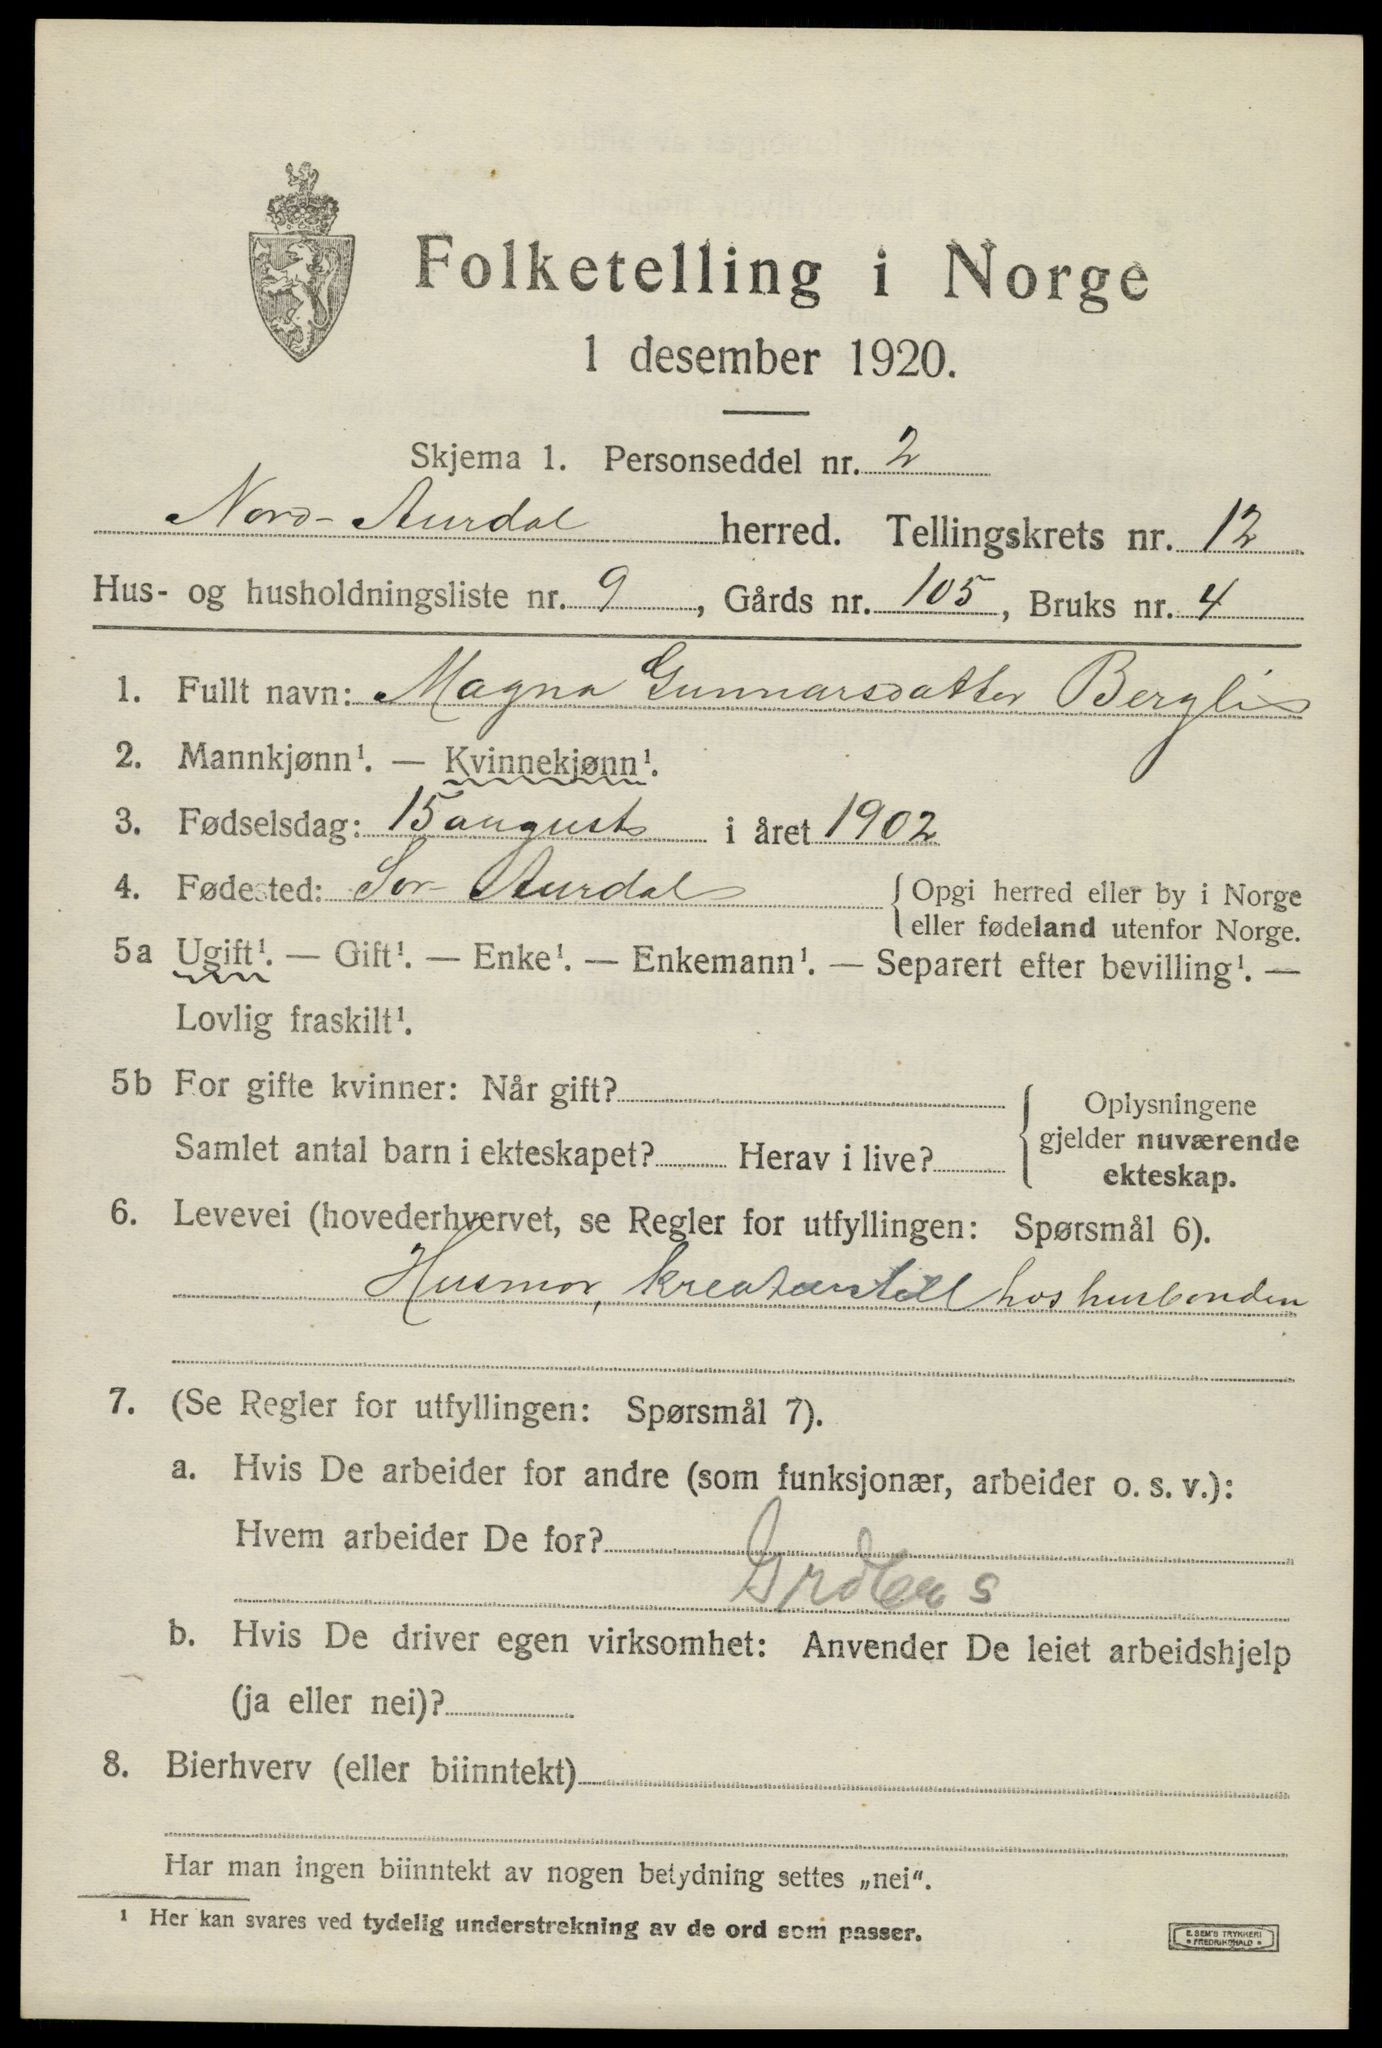 Folketelling i Norge
1 desember 1920.
Skjema 1. Personseddel nr. 2
Nord-Aurdal herred. Tellingskrets nr. 12
Hus- og husholdningsliste nr. 9, Gårds nr. 105, Bruks nr. 4
1. Fullt navn: Magna Gunnarsdatter Bergli
2. Mannkjønn¹. — Kvinnekjønn¹.
3. Fødselsdag: 15 august i året 1902
4. Fødested: Sør-Aurdal { Opgi herred eller by i Norge
eller fødeland utenfor Norge.
5a Ugift¹. — Gift¹. — Enke¹. — Enkemann¹. — Separert efter bevilling¹. —
Lovlig fraskilt¹.
5b For gifte kvinner: Når gift?
Samlet antal barn i ekteskapet? Herav i live?
{ Oplysningene
gjelder nuværende
ekteskap.
6. Levevei (hovederhvervet, se Regler for utfyllingen: Spørsmål 6).
Husmor, kreaturstell hos husbonden
7. (Se Regler for utfyllingen: Spørsmål 7).
a. Hvis De arbeider for andre (som funksjonær, arbeider o. s. v.):
Hvem arbeider De for?
b. Hvis De driver egen virksomhet: Anvender De leiet arbeidshjelp
(ja eller nei)?
8. Bierhverv (eller biinntekt)
Har man ingen biinntekt av nogen betydning settes „nei“.
¹ Her kan svares ved tydelig understrekning av de ord som passer.
E. SEM'S TRYKKERI
* FREDRIKSHALD *